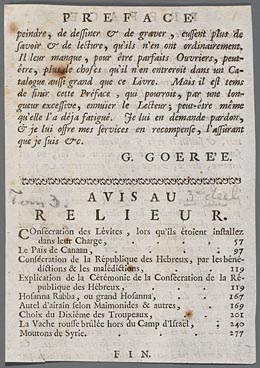 PREFACE
peindre, de dessiner & de graver, eussent plus de
savoir & de lecture, qu'ils n'en ont ordinairement.
Il leur manque, pour être parfaits Ouvriers, peut-
être, plus de choses qu'il n'en entreroit dans un Ca-
talogue aussi grand que ce Livre. Mais il est tems
de finir cette Préface, qui pourroit, par une lon-
gueur excessive, ennuier le Lecteur; peut-être même
qu'elle l'a déja fatigué. Je lui en demande pardon,
& je lui offre mes services en recompense, l'assurant
que je suis &c.
G. GOERE'E.
AVIS AU
Tom 3.
RELIEUR.
Consécration des Lévites, lors qu'ils étoient installez
dans leur Charge, 57
Le Païs de Canaan, 97
Consécration de la République des Hébreux, par les béné-
dictions & les malédictions, 119
Explication de la Cérémonie de la Consécration de la Ré-
publique des Hébreux, 119
Hosanna Rabba, ou grand Hosanna, 167
Autel d'airain selon Maimonides & autres, 169
Choix du Dixiême des Troupeaux, 201
La Vache rousse brûlée hors du Camp d'Israel, 240
Moutons de Syrie. 277
FIN.